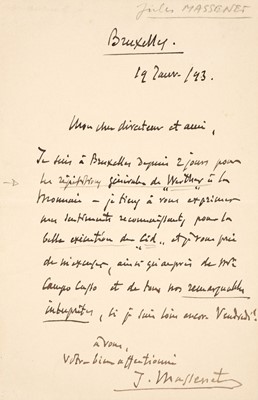 Jules MASSENET
Bruxelles.
19 Janv./93.
Mon cher directeur et ami,
Je suis à Bruxelles depuis 2 jours pour
les répétitions générales de "Werther" à la
Monnaie – je tiens à vous exprimer
mes sentiments reconnaissants pour la
belle exécution du "Cid", et je vous prie
de m'excuser, ainsi qu'auprès de
Campo Casso et de tous nos remarquables
interprètes, si je suis loin encore Vendredi!
à vous,
votre bien affectionné
J. Massenet